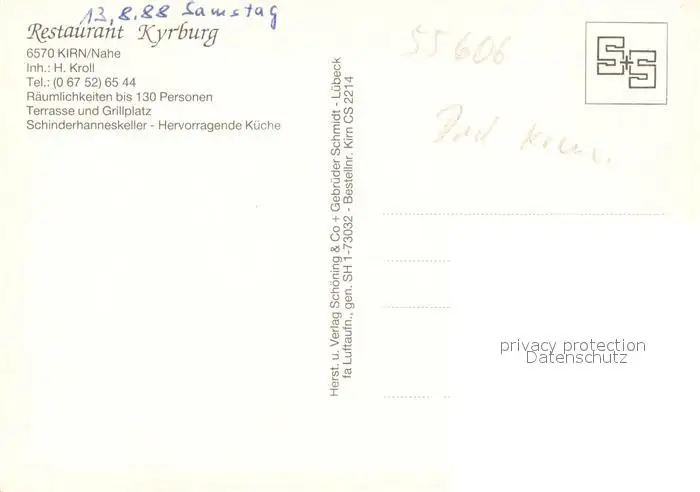 13.8.88 Samstag
Restaurant Kyrburg
6570 KIRN/Nahe
Inh.: H. Kroll
Tel.: (0 67 52) 65 44
Räumlichkeiten bis 130 Personen
Terrasse und Grillplatz
Schinderhanneskeller - Hervorragende Küche
Herst. u. Verlag Schöning & Co + Gebrüder Schmidt - Lübeck
fa Luftaufn., gen. SH 1-73032 - Bestellnr. Kirn CS 2214
55606
S+S
privacy protection
Datenschutz